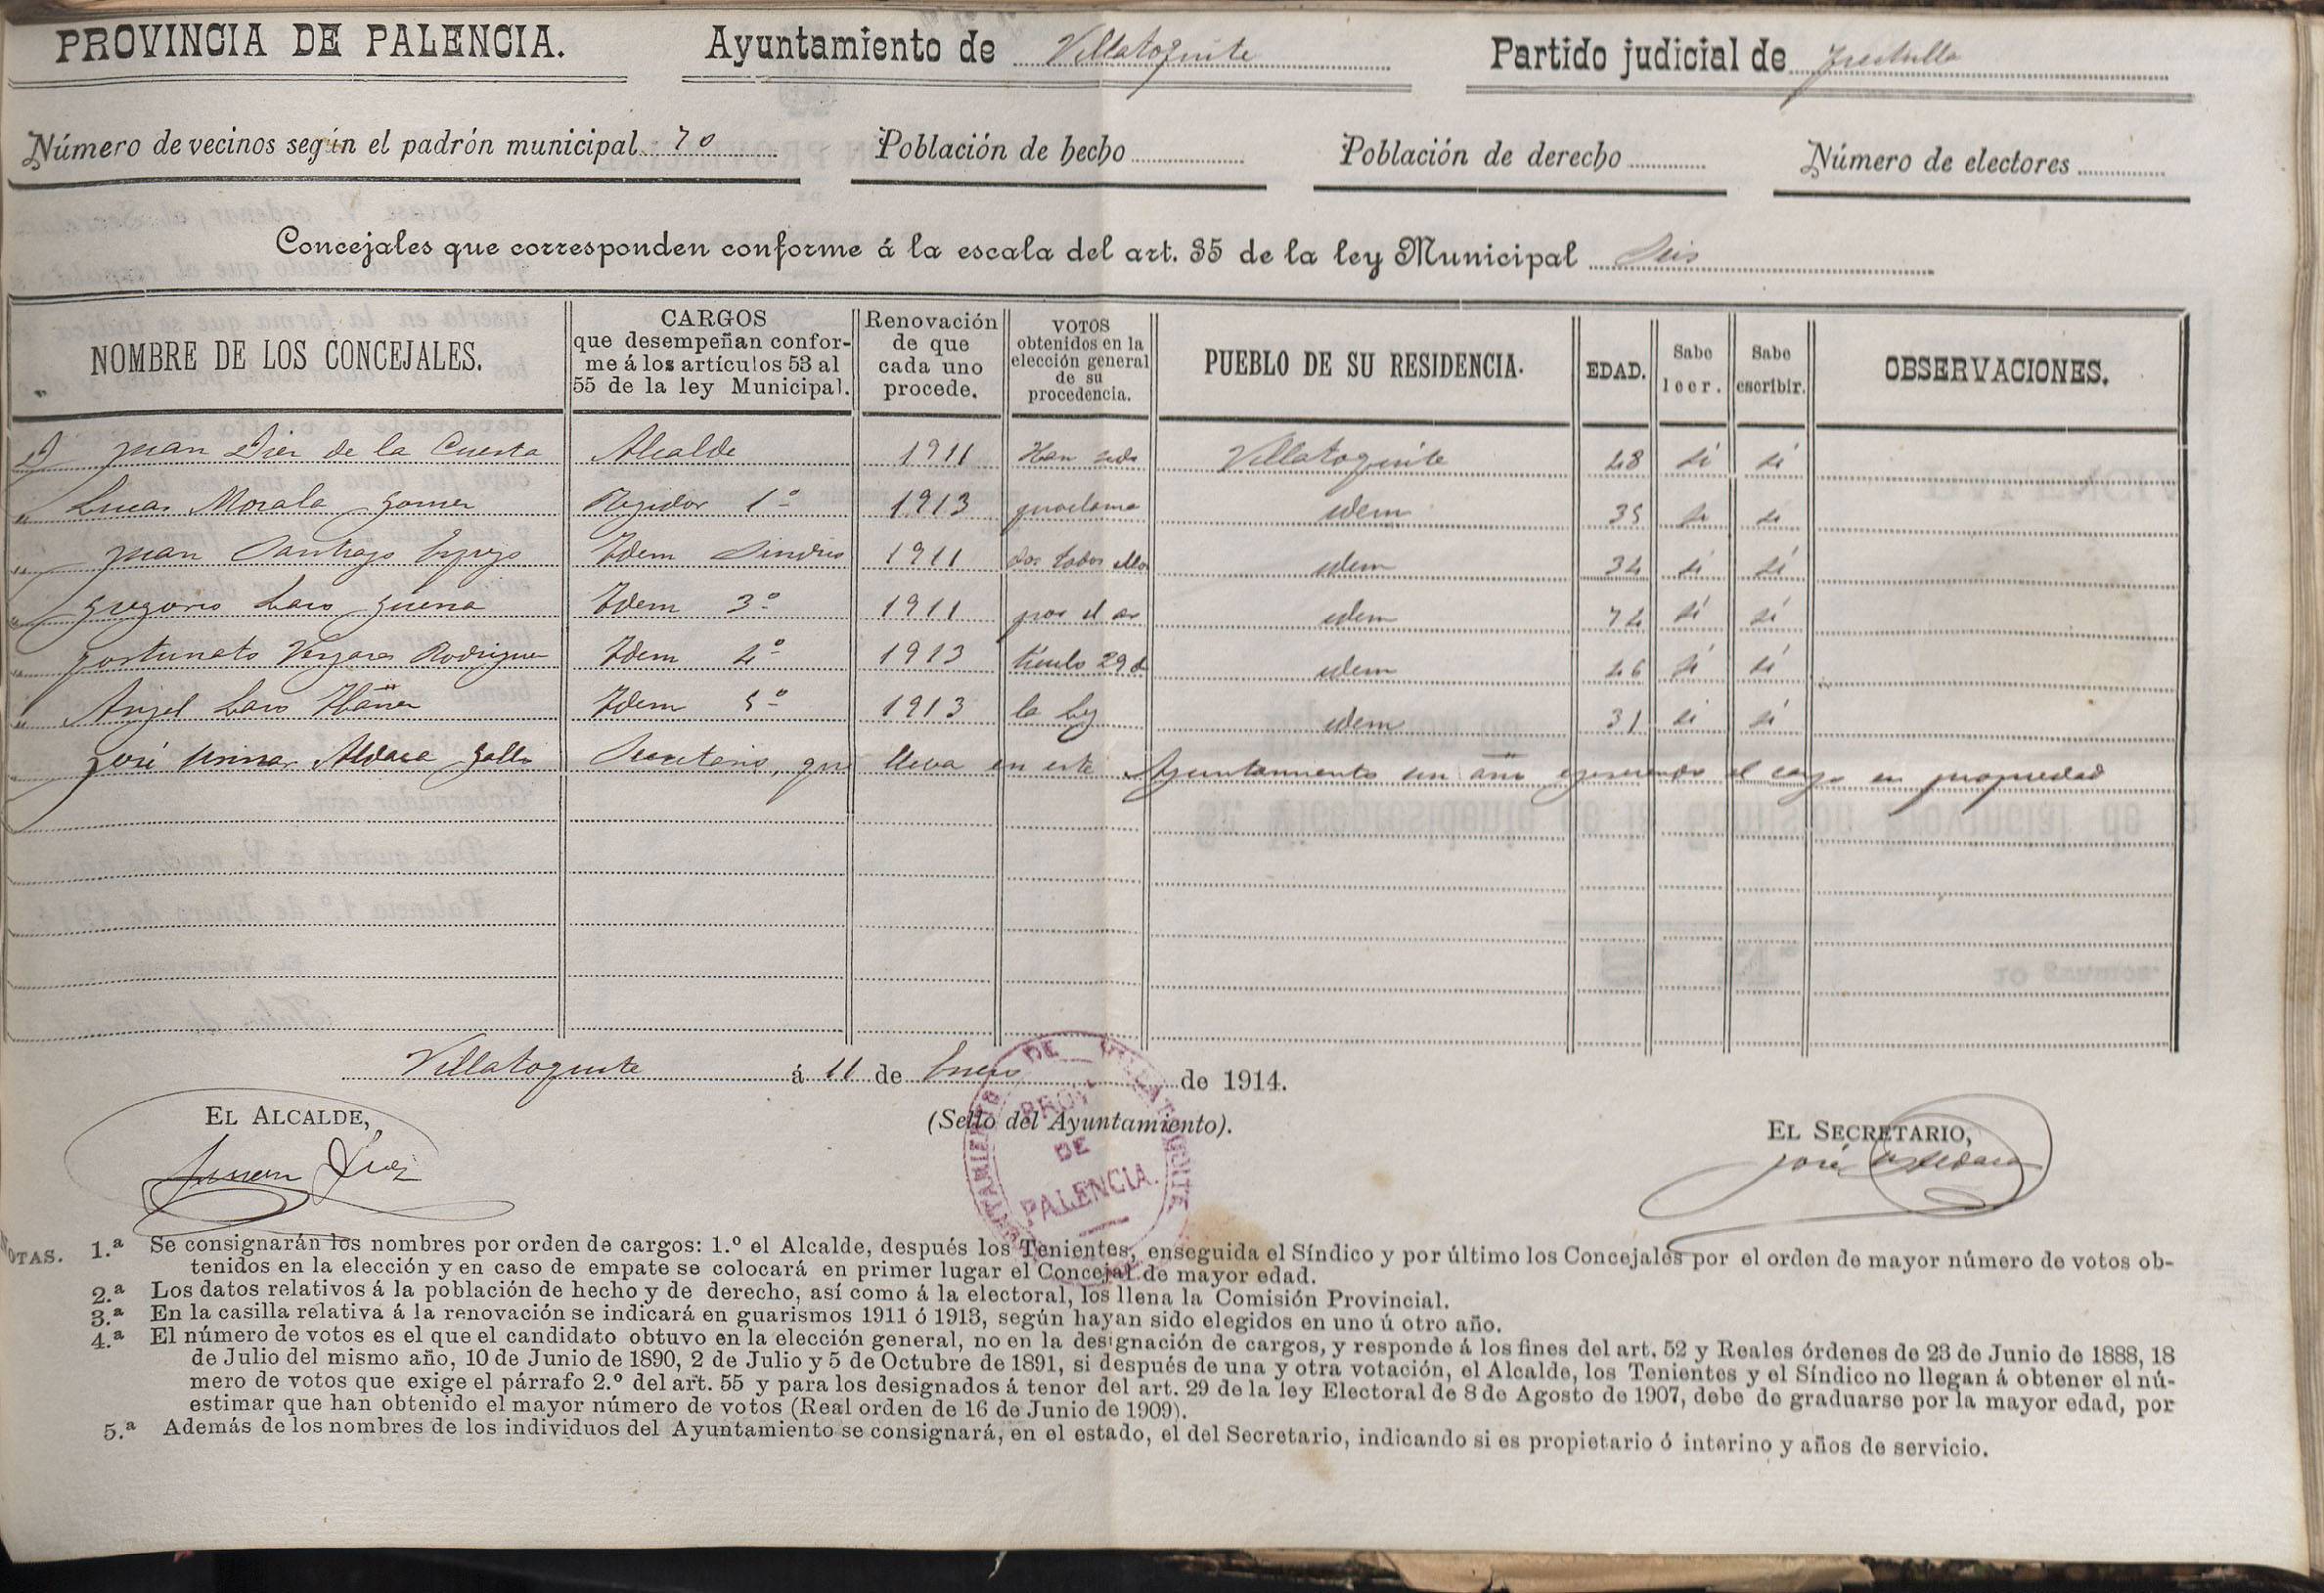 PROVINCIA DE PALENCIA. Ayuntamiento de Villatoquite Partido judicial de Frechilla
Número de vecinos según el padrón municipal 70 Población de hecho Población de derecho Número de electores
Concejales que corresponden conforme á la escala del art. 35 de la ley Municipal Seis
NOMBRE DE LOS CONCEJALES. CARGOS que desempeñan conforme á los artículos 53 al 55 de la ley Municipal. Renovación de que cada uno procede. VOTOS obtenidos en la elección general de su procedencia. PUEBLO DE SU RESIDENCIA. EDAD. Sabe leer. Sabe escribir. OBSERVACIONES.
D Juan Diez de la Cuesta Alcalde 1911 Han sido Villatoquite 48 si si
" Lucas Morala Gomez Regidor 1º 1913 proclama idem 35 si si
" Juan Santiago Idem Sindico 1911 dos todos ellos idem 34 si si
" Gregorio Laso Guerra Idem 3º 1911 por el ar idem 74 si si
" Fortunato Vergara Rodriguez Idem 4º 1913 tículo 29 d idem 46 si si
" Angel Laso Ibáñez Idem 5º 1913 la Ley idem 31 si si
José Aldaca Gallo Secretario, que lleva en este Ayuntamiento un año ejerciendo el cargo en propiedad
Villatoquite á 11 de Enero de 1914.
EL ALCALDE, (Sello del Ayuntamiento). EL SECRETARIO,
Juan Diez José Aldaca
AYUNTAMIENTO DE VILLATOQUITE
PROV.
DE
PALENCIA.
NOTAS. 1.ª Se consignarán los nombres por orden de cargos: 1.º el Alcalde, después los Tenientes, enseguida el Síndico y por último los Concejales por el orden de mayor número de votos ob-
tenidos en la elección y en caso de empate se colocará en primer lugar el Concejal de mayor edad.
2.ª Los datos relativos á la población de hecho y de derecho, así como á la electoral, los llena la Comisión Provincial.
3.ª En la casilla relativa á la renovación se indicará en guarismos 1911 ó 1913, según hayan sido elegidos en uno ú otro año.
4.ª El número de votos es el que el candidato obtuvo en la elección general, no en la designación de cargos, y responde á los fines del art. 52 y Reales órdenes de 23 de Junio de 1888, 18
de Julio del mismo año, 10 de Junio de 1890, 2 de Julio y 5 de Octubre de 1891, si después de una y otra votación, el Alcalde, los Tenientes y el Síndico no llegan á obtener el nú-
mero de votos que exige el párrafo 2.º del art. 55 y para los designados á tenor del art. 29 de la ley Electoral de 8 de Agosto de 1907, debe de graduarse por la mayor edad, por
estimar que han obtenido el mayor número de votos (Real orden de 16 de Junio de 1909).
5.ª Además de los nombres de los individuos del Ayuntamiento se consignará, en el estado, el del Secretario, indicando si es propietario ó interino y años de servicio.